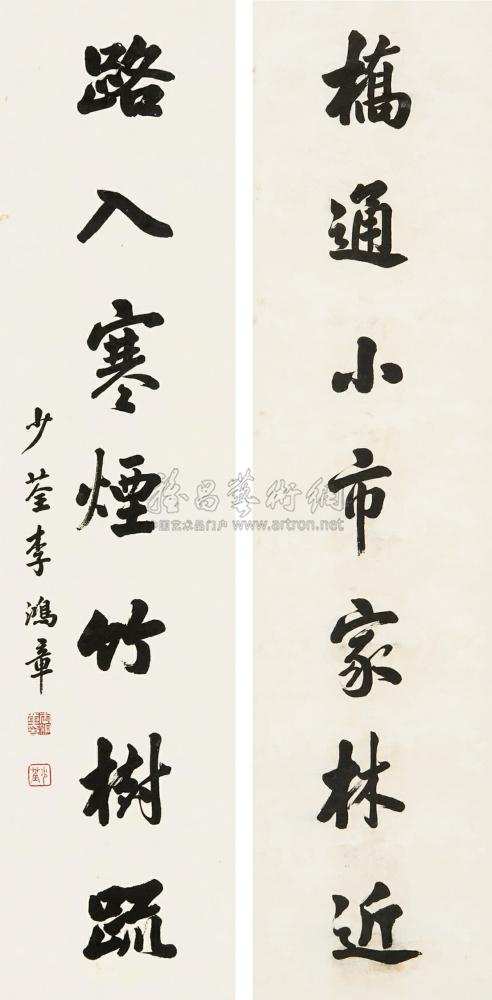 橋通小市家林近
路入寒煙竹樹疏
少荃李鴻章
少荃
雅昌藝術網
中国艺术品门户 www.artron.net